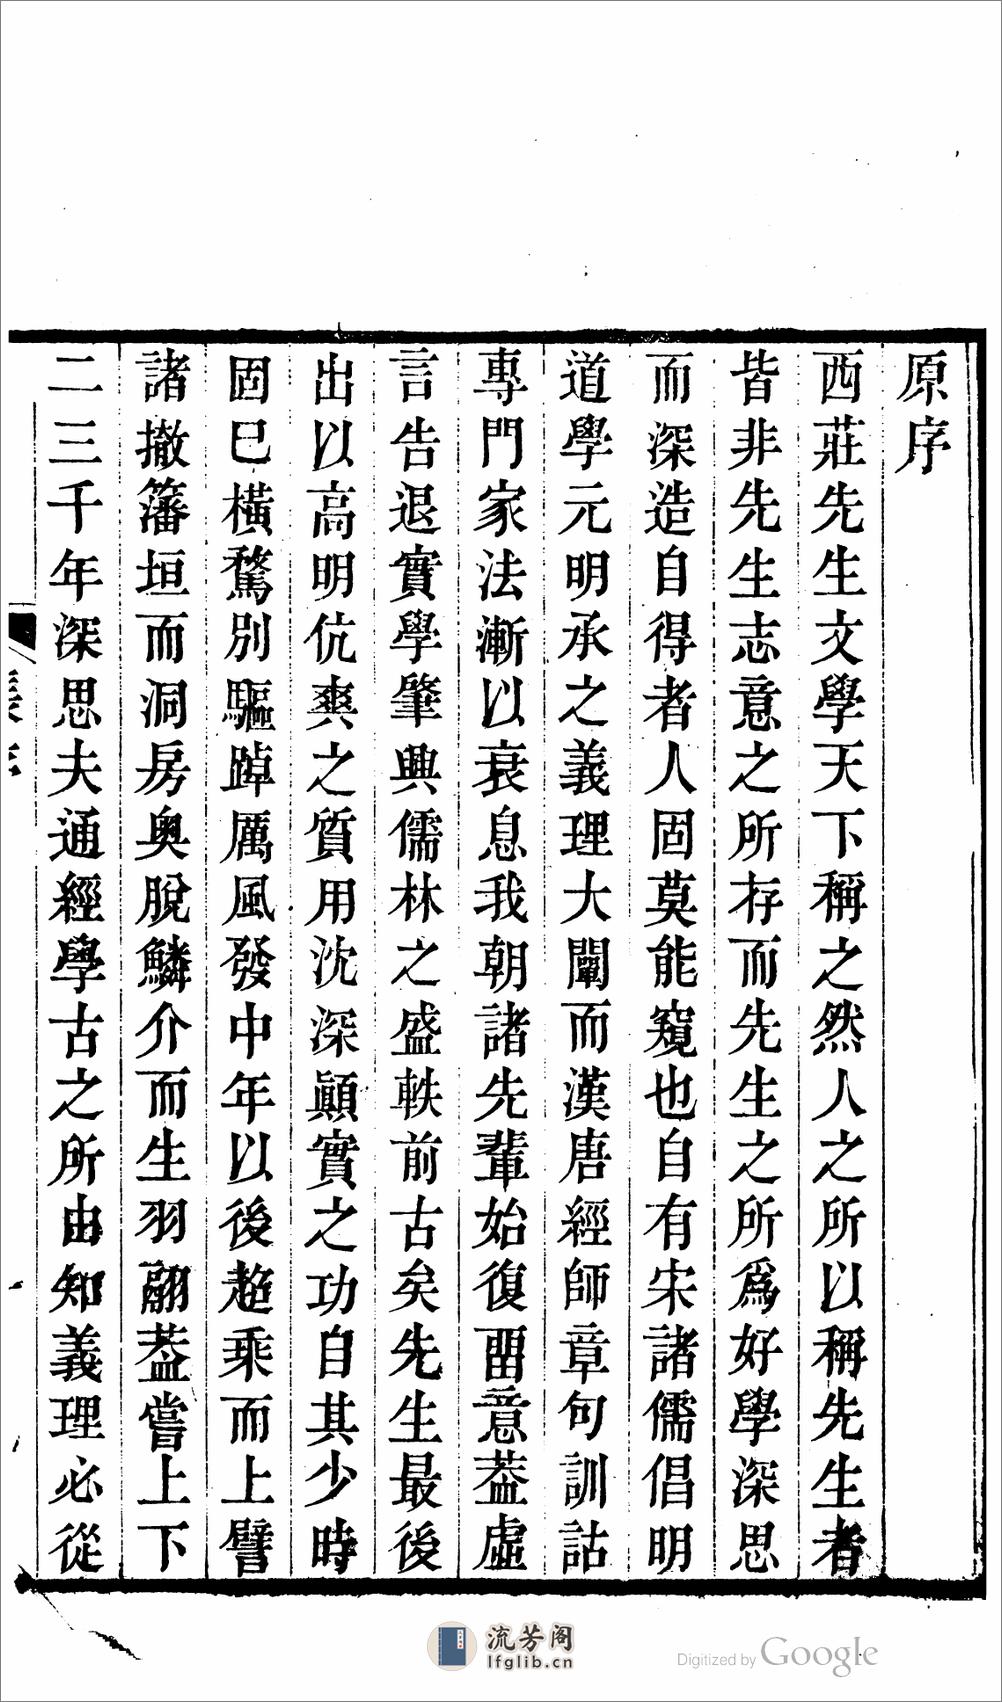 原序
西莊先生文學天下稱之然人之所以稱先生者
皆非先生志意之所存而先生之所爲好學深思
而深造自得者人固莫能窺也自有宋諸儒倡明
道學元明承之義理大闡而漢唐經師章句訓詁
專門家法漸以衰息我朝諸先輩始復畱意葢虛
言告退實學肇興儒林之盛軼前古矣先生最後
出以高明伉爽之質用沈深顚實之功自其少時
固已橫騖別驅踔厲風發中年以後趁乘而上譬
諸撤籓垣而洞房奥脫鱗介而生羽翮葢嘗上下
二三千年深思夫通經學古之所由知義理必從
流芳阁
lfglib.cn
Digitized by Google